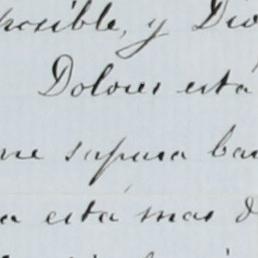 posible, y Dio
Dolores está
me supura ba
a está mas d